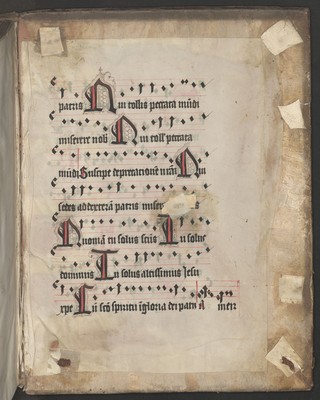 patris Qui tollis peccata mũdi
miserere nob Qui toll peccata
mũdi Suscipe deprecationẽ nrãm Qui
sedes ad dexterã patris miser s
Quoniã tu solus scũs Tu solus
dominus Tu solus altissimus Jesu
xpe Cũ scõ spiritu ĩ gloria dei patri A men